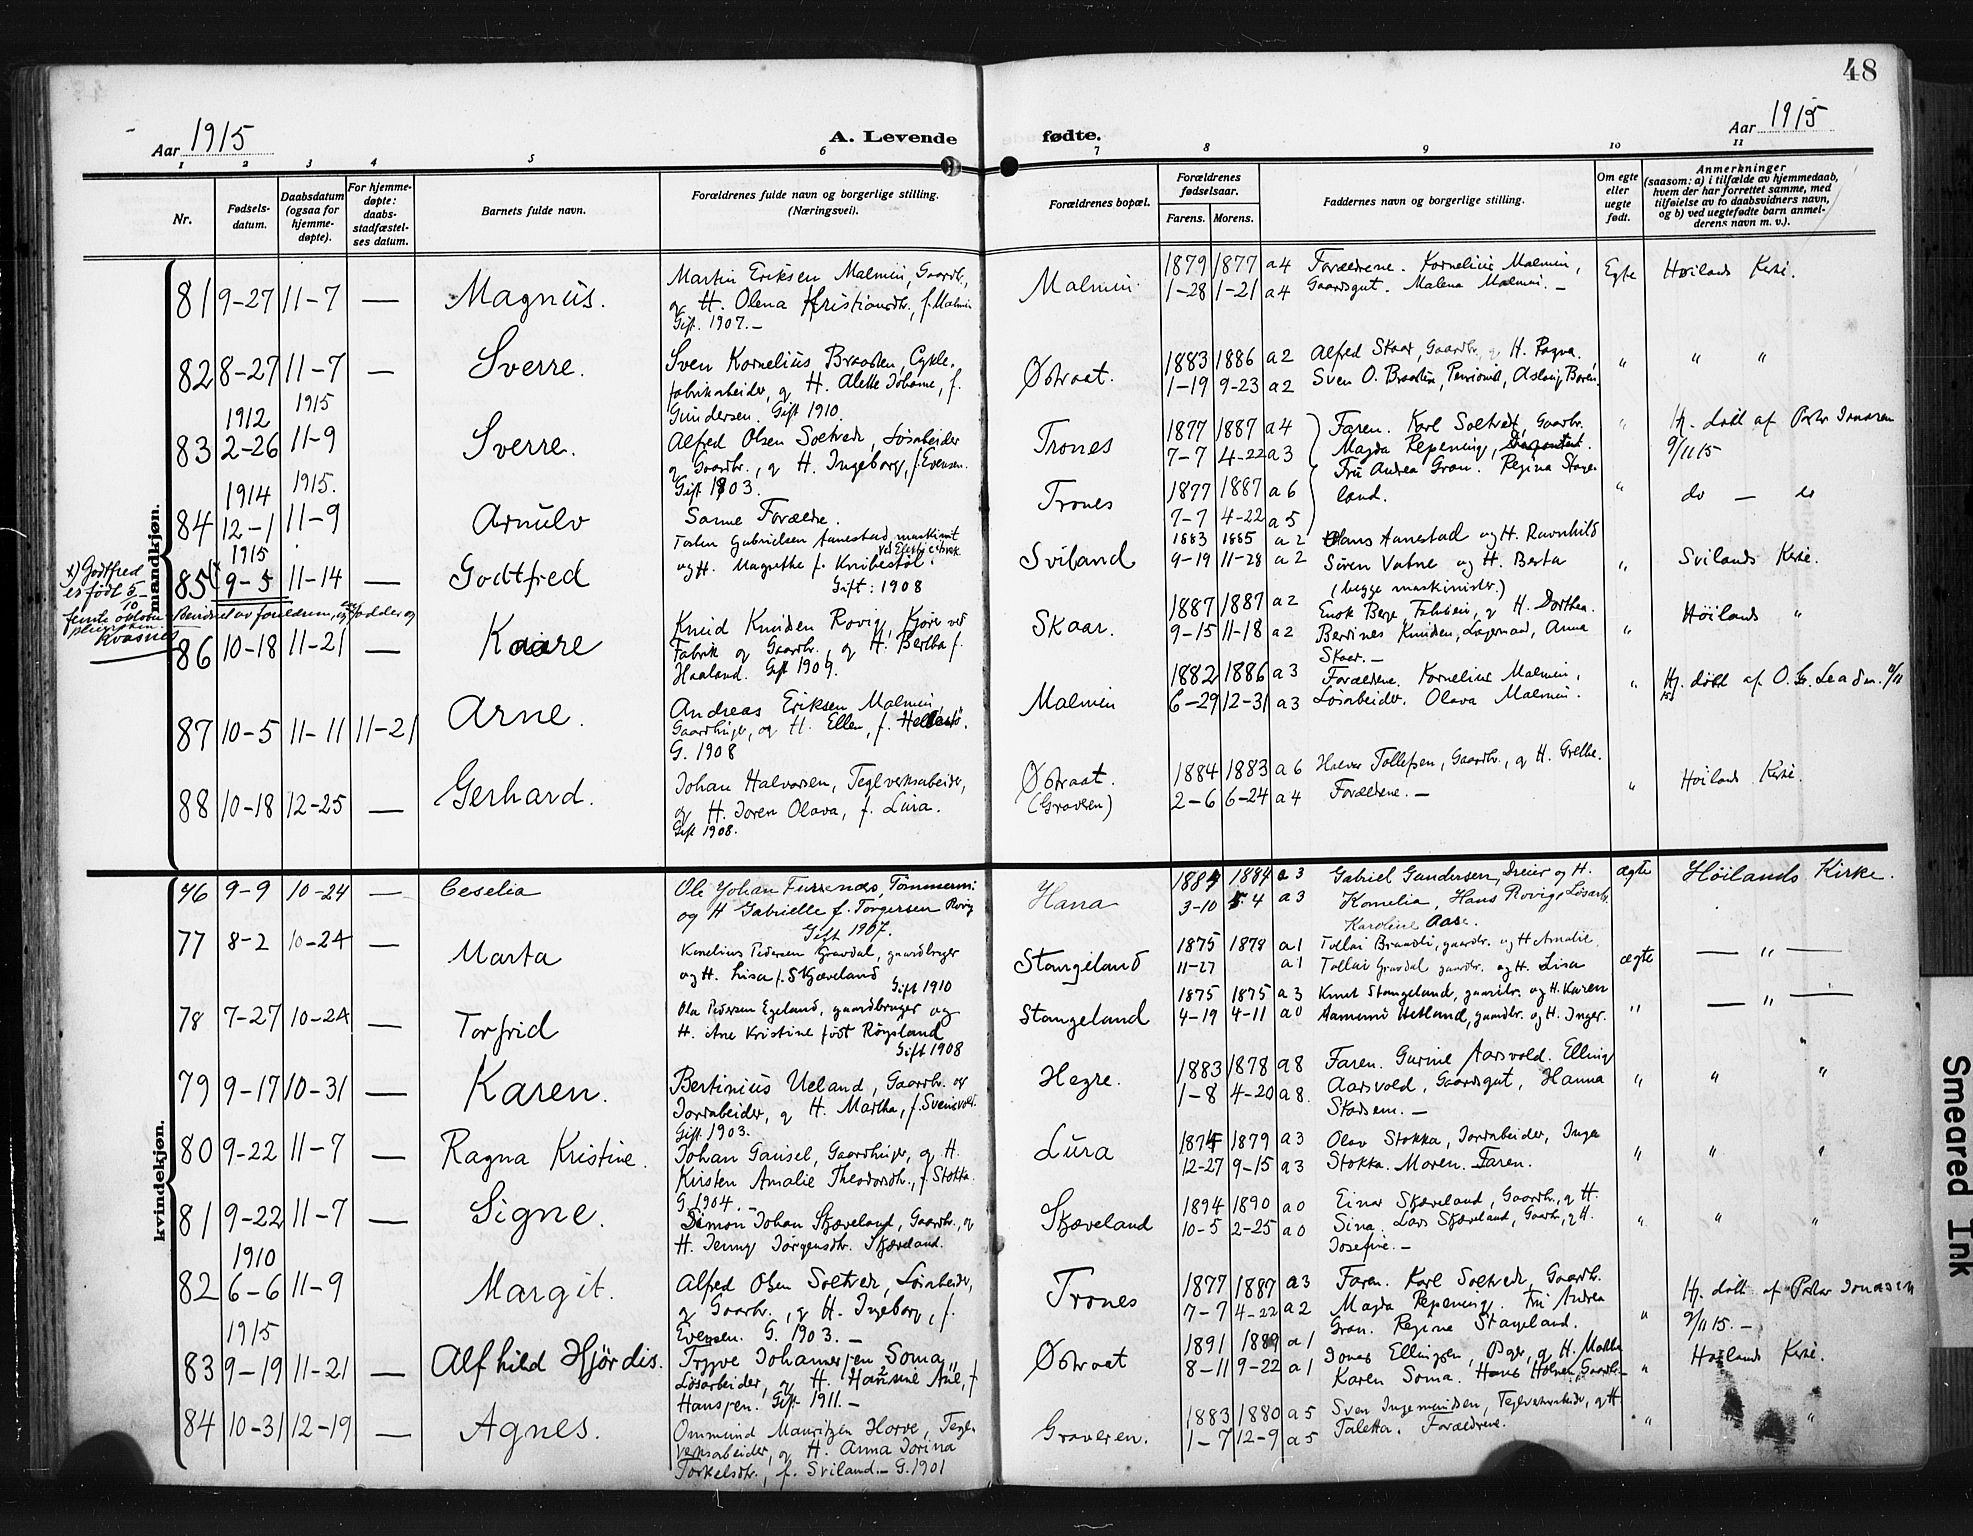 48
Aar 1915
A. Levende fødte.
Aar 1915
1 2 3 4 5 6 7 8 9 10 11
Nr.
Fødsels-
datum.
Daabsdatum
(ogsaa for
hjemme-
døpte).
For hjemme-
døpte:
daabs-
stadfæstel-
ses datum.
Barnets fulde navn.
Forældrenes fulde navn og borgerlige stilling.
(Næringsvei).
Forældrenes bopæl.
Forældrenes
fødselsaar.
Farens. Morens.
Faddernes navn og borgerlige stilling.
Om egte
eller
uegte
født.
Anmerkninger
(saasom: a) i tilfælde av hjemmedaab,
hvem der har forrettet samme, med
tilføielse av to daabsvidners navn,
og b) ved uegtefødte barn anmel-
derens navn m. v.).
mandkjøn.
81 9-27 11-7 — Magnus.
Martin Eriksen Malmin, Gaardb.,
og H. Olena Kristiansdtr., f. Malmin
Gift. 1907.—
Malmin
1879 1877 a4 Forældrene. Kornelius Malmin, Egte Høilands Kirke.
1-28 1-21 a4 Gaardsgut. Malena Malmin.—
82 8-27 11-7 — Sverre.
Sven Kornelius Braasten, Cykle-
fabrikarbeider, og H. Alette Johanne, f.
Gundersen. Gift 1910.
Østraat.
1883 1886 a2 Alfred Skaar, Gaardbr., og H. Ragna. " " "
1-19 9-23 a2 Sven O. Braasten, Pensionist, Aslaug
1912 1915
83 2-26 11-9 Sverre.
Alfred Olsen Soltvedt, Løsarbeider
og Gaardbr., og H. Ingeborg, f. Evensen.
Gift 1903.
Trones
1877 1887 a4 Faren. Karl Soltvedt, Gaardbr. " Hj. døbt af Pastor Jonasen
7-7 4-22 a3 Magda Repening, 9/11 15
Fru Andrea Gran. Regina Stange-
land.
1914 1915.
84 12-1 11-9 Arnulv
Samme Forældre.
Trones
1877 1887 a6 " do — do
7-7 4-22 a5
1915
85 9-5 11-14 — Godtfred
Gabrielsen Aanestad, maskinist
og H. Magrethe f. Knibestøl.
Gift: 1908
Sviland
1883 1885 a2 Hans Aanestad og H. Ravnhild
9-19 11-28 a2 Søren Vatne og H. Berta " Svilands Kirke.
(begge maskinister)
x) Godtfred
er født 5/10
femte oktober
Bevidnet av forældrene, og fadder og
Kvasnes
86 10-18 11-21 — Kaare
Knud Knudsen Rovig, Kjører ved
Fabrik og Gaardbr., og H. Bertha f.
Haaland. Gift 1909.
Skaar.
1887 1887 a2 Enok Berge H. Dorthea. Høilands "
9-15 11-18 a2 Berdines Knudsen, Anna "
Skaar.—
87 10-5 11-11 11-21 Arne.
Andreas Eriksen Malmin,
og H. Ellen, f.
G. 1908
Malmin
1882 1886 a3 Forældrene. Kornelius Malmin, " Hj. døbt af
6-29 12-31 a3 Løsarbeider. Olava Malmin.
88 10-18 12-25 — Gerhard.
Johan Halvorsen, Teglverksarbeider,
og H. Joren Olava, f. Lura.
Gift 1908.
Østraat.
(Graveren)
1884 1883 a6 Halvor Tollefsen, Gaardbr., og H. Grethe. Høilands Kirke.
2-6 6-24 a4 Forældrene.— "
kvindekjøn.
76 9-9 10-24 — Ceselia
Ole Johan Furrenæs, Tømmerm.
og H Gabrielle f. Torgersen Rovig
Gift 1907.
Hana
1884 1884 a3 Gabriel Gundersen, Dreier og H. ægte Høilands Kirke.
3-10 5-4 a3 Kornelia, Hans Rovig, Løsarb.
Karoline Aase.
77 8-2 10-24 — Marta
Kornelius Pedersen Gravdal, gaardbruger
og H. Lisa f. Skjæveland
Gift 1910
Stangeland
1875 1878 a1 Tollai Brandli, gaardbr. og H Amalie.
11-27 a1 Tollai Gravdal gaardbr. og H. Lisa ægte — " —
78 7-27 10-24 — Torfrid
Ola Pedersen Egeland, gaardbruger og
H. Ane Kristine født Røysland
Gift 1908
Stangeland
1875 1875 a3 Knut Stangeland, gaardbr. og H. Karen " — " —
4-19 4-11 a0 Aamund Hetland, gaardbr. og H. Inger.
79 9-17 10-31 — Karen.
Bertinius Ueland, Gaardbr. og
Jordarbeider, og H. Martha, f. Svensvold.
Gift. 1903.
Hegre.
1883 1878 a8 Faren. Gurine Aarsvold. Elling
1-8 4-20 a8. Aarsvold, Gaardsgut, Hanna " " "
Skadsem.—
80 9-22 11-7 — Ragna Kristine.
Johan Gausel, og H.
Kirsten Amalie Theodorsdtr., f. Stokka.
G. 1904.—
Lura
1874 1879 a3 Olav Stokka, Jordarbeider, Inga
12-27 9-15 a3 Stokka. Moren. Faren. " " "
81 9-22 11-7 — Signe.
Simon Johan Skjæveland, Gaardbr., og
H. Jenny Jørgensdtr. Skjæveland.
Skjæveland
1894 1890 a0 Einar Skjæveland, Gaardbr., og H.
10-5 2-25 a0 Sina. Lars Skjæveland, Gaardb., og H. " " "
Josefine.—
1910
82 6-6 11-9 Margit.
Alfred Olsen Soltvedt, Løsarbeider,
og Gaardbr., og H. Ingeborg, f.
Evensen. G. 1903.—
Trones
1877 1887 a3 Faren. Karl Soltvedt, Gaardb. Hj. døbt af Pastor Jonasen
7-7 4-22 a2 Magda Repening. Fru Andrea " 9/11 15.—
Gran. Regine Stangeland.
1915
83 9-19 11-21 — Alfhild Hjørdis.
Trygve Johannessen Soma,
Løsarbeider, og H. Hansine Ane, f.
Hanssen. Gift 1911.—
Østraat
1891 1889 a1 Jonas Ellingsen, og H. Høilands Kirke.
8-11 9-22 a1 Karen Soma. Hans Holmen, Gaardb.— "
84 10-31 12-19 — Agnes.
Ommund Mauritzen Horve, Tegl-
verksarbeider, og H. Anna Jorina
Torkelsdtr., f. Sviland.— G. 1901
Graveren.
1883 1880 a5 Sven Ingemundsen, Teglverksarbeider, og H. " "
1-7 12-9 a5 Taletta. Forældrene.
Smeared Ink